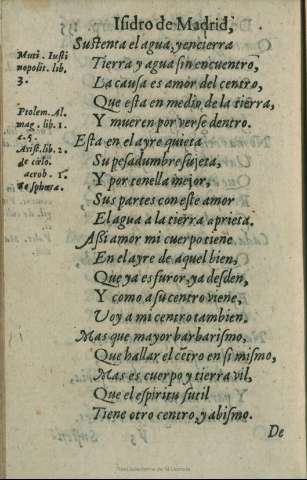 Isidro de Madrid,
Sustenta el agua, y encierra
Tierra y agua sin encuentro,
La causa es amor del centro,
Que esta en medio de la tierra,
Y mueren por verse dentro.
Esta en el ayre quieta
Su pesadumbre sujeta,
Y por tenella mejor,
Sus partes con este amor
El agua a la tierra aprieta.
Aßi amor mi cuerpo tiene
En el ayre de aquel bien,
Que ya es furor, ya desden,
Y como a su centro viene,
Voy a mi centro tambien.
Mas que mayor barbarismo,
Que hallar el cẽtro en si mismo,
Mas es cuerpo y tierra vil,
Que el espiritu sutil
Tiene otro centro, y abismo.
De
Muti. Iusti
nopolit. lib.
3.
Ptolem. Al.
mag. lib. 1.
c. 5.
Arist. lib. 2.
de cœlo.
acrob. 1.
de sphæra.